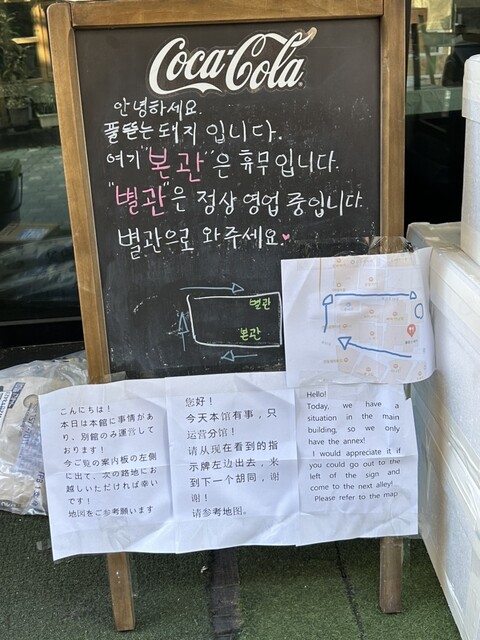 Coca-Cola
안녕하세요.
풀뜯는돼지 입니다.
여기 "본관"은 휴무입니다.
"별관"은 정상 영업 중입니다.
별관으로 와주세요.♥
별관
본관
こんにちは！
本日は本館に事情があ
り、別館のみ運営して
おります！
今ご覧の案内板の左側
に出て、次の路地にお
越しいただければ幸い
です！
地図をご参考願います
您好！
今天本馆有事，只
运营分馆！
请从现在看到的指
示牌左边出去，来
到下一个胡同，谢
谢！
请参考地图。
Hello!
Today, we have a
situation in the main
building, so we only
have the annex!
I would appreciate it if
you could go out to the
left of the sign and
come to the next alley!
Please refer to the map